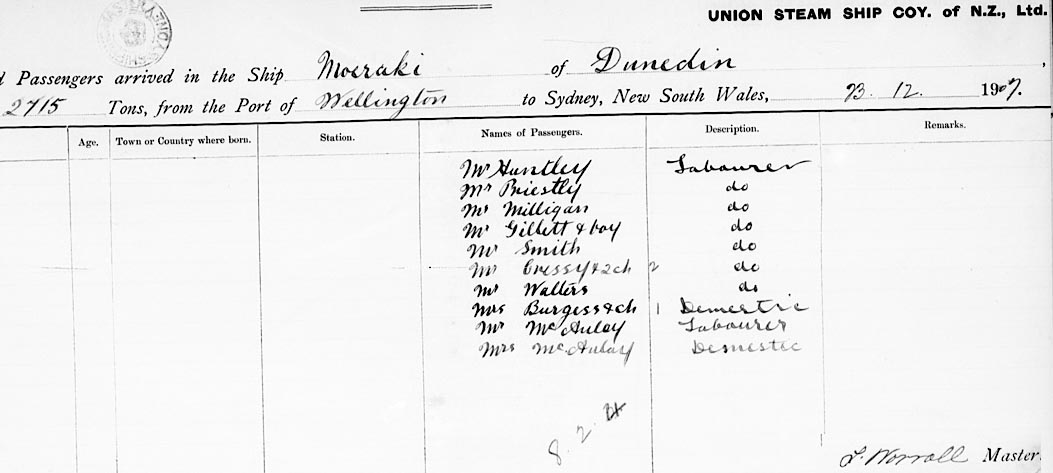 UNION STEAM SHIP COY. of N.Z., Ltd.
Passengers arrived in the Ship Moeraki of Dunedin,
2715 Tons, from the Port of Wellington to Sydney, New South Wales, 23. 12. 1907.
Age. Town or Country where born. Station. Names of Passengers. Description. Remarks.
Mr Huntley Labourer
Mr Priestly do
Mr Milligan do
Mr Gillett & boy do
Mr Smith do
Mr Cressy & 2 ch 2 do
Mr Walters do
Mrs Burgess & ch 1 Domestic
Mr McAulay Labourer
Mrs McAulay Domestic
8. 2.
Worrall Master